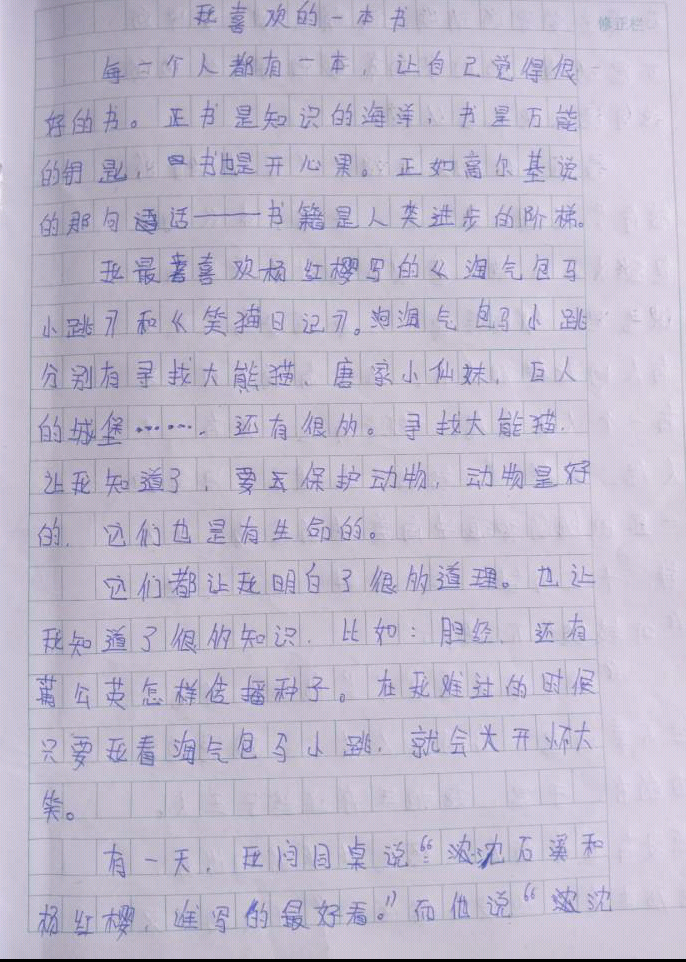 我喜欢的一本书
修正栏
每一个人都有一本，让自己觉得很
好的书。正书是知识的海洋，书是万能
的钥匙，书也是开心果。正如高尔基说
的那句话——书籍是人类进步的阶梯。
我最喜欢杨红樱写的《淘气包马
小跳》和《笑猫日记》。淘气包马小跳
分别有寻找大熊猫、唐家小仙妹，巨人
的城堡……，还有很多。寻找大熊猫，
让我知道了，要去保护动物，动物是好
的，它们也是有生命的。
它们都让我明白了很多道理。也让
我知道了很多知识，比如：胆经，还有
蒲公英怎样传播种子。在我难过的时候
只要我看淘气包马小跳，就会大开怀大
笑。
有一天，我问同桌说“沈石溪和
杨红樱，谁写的最好看。”而他说“沈